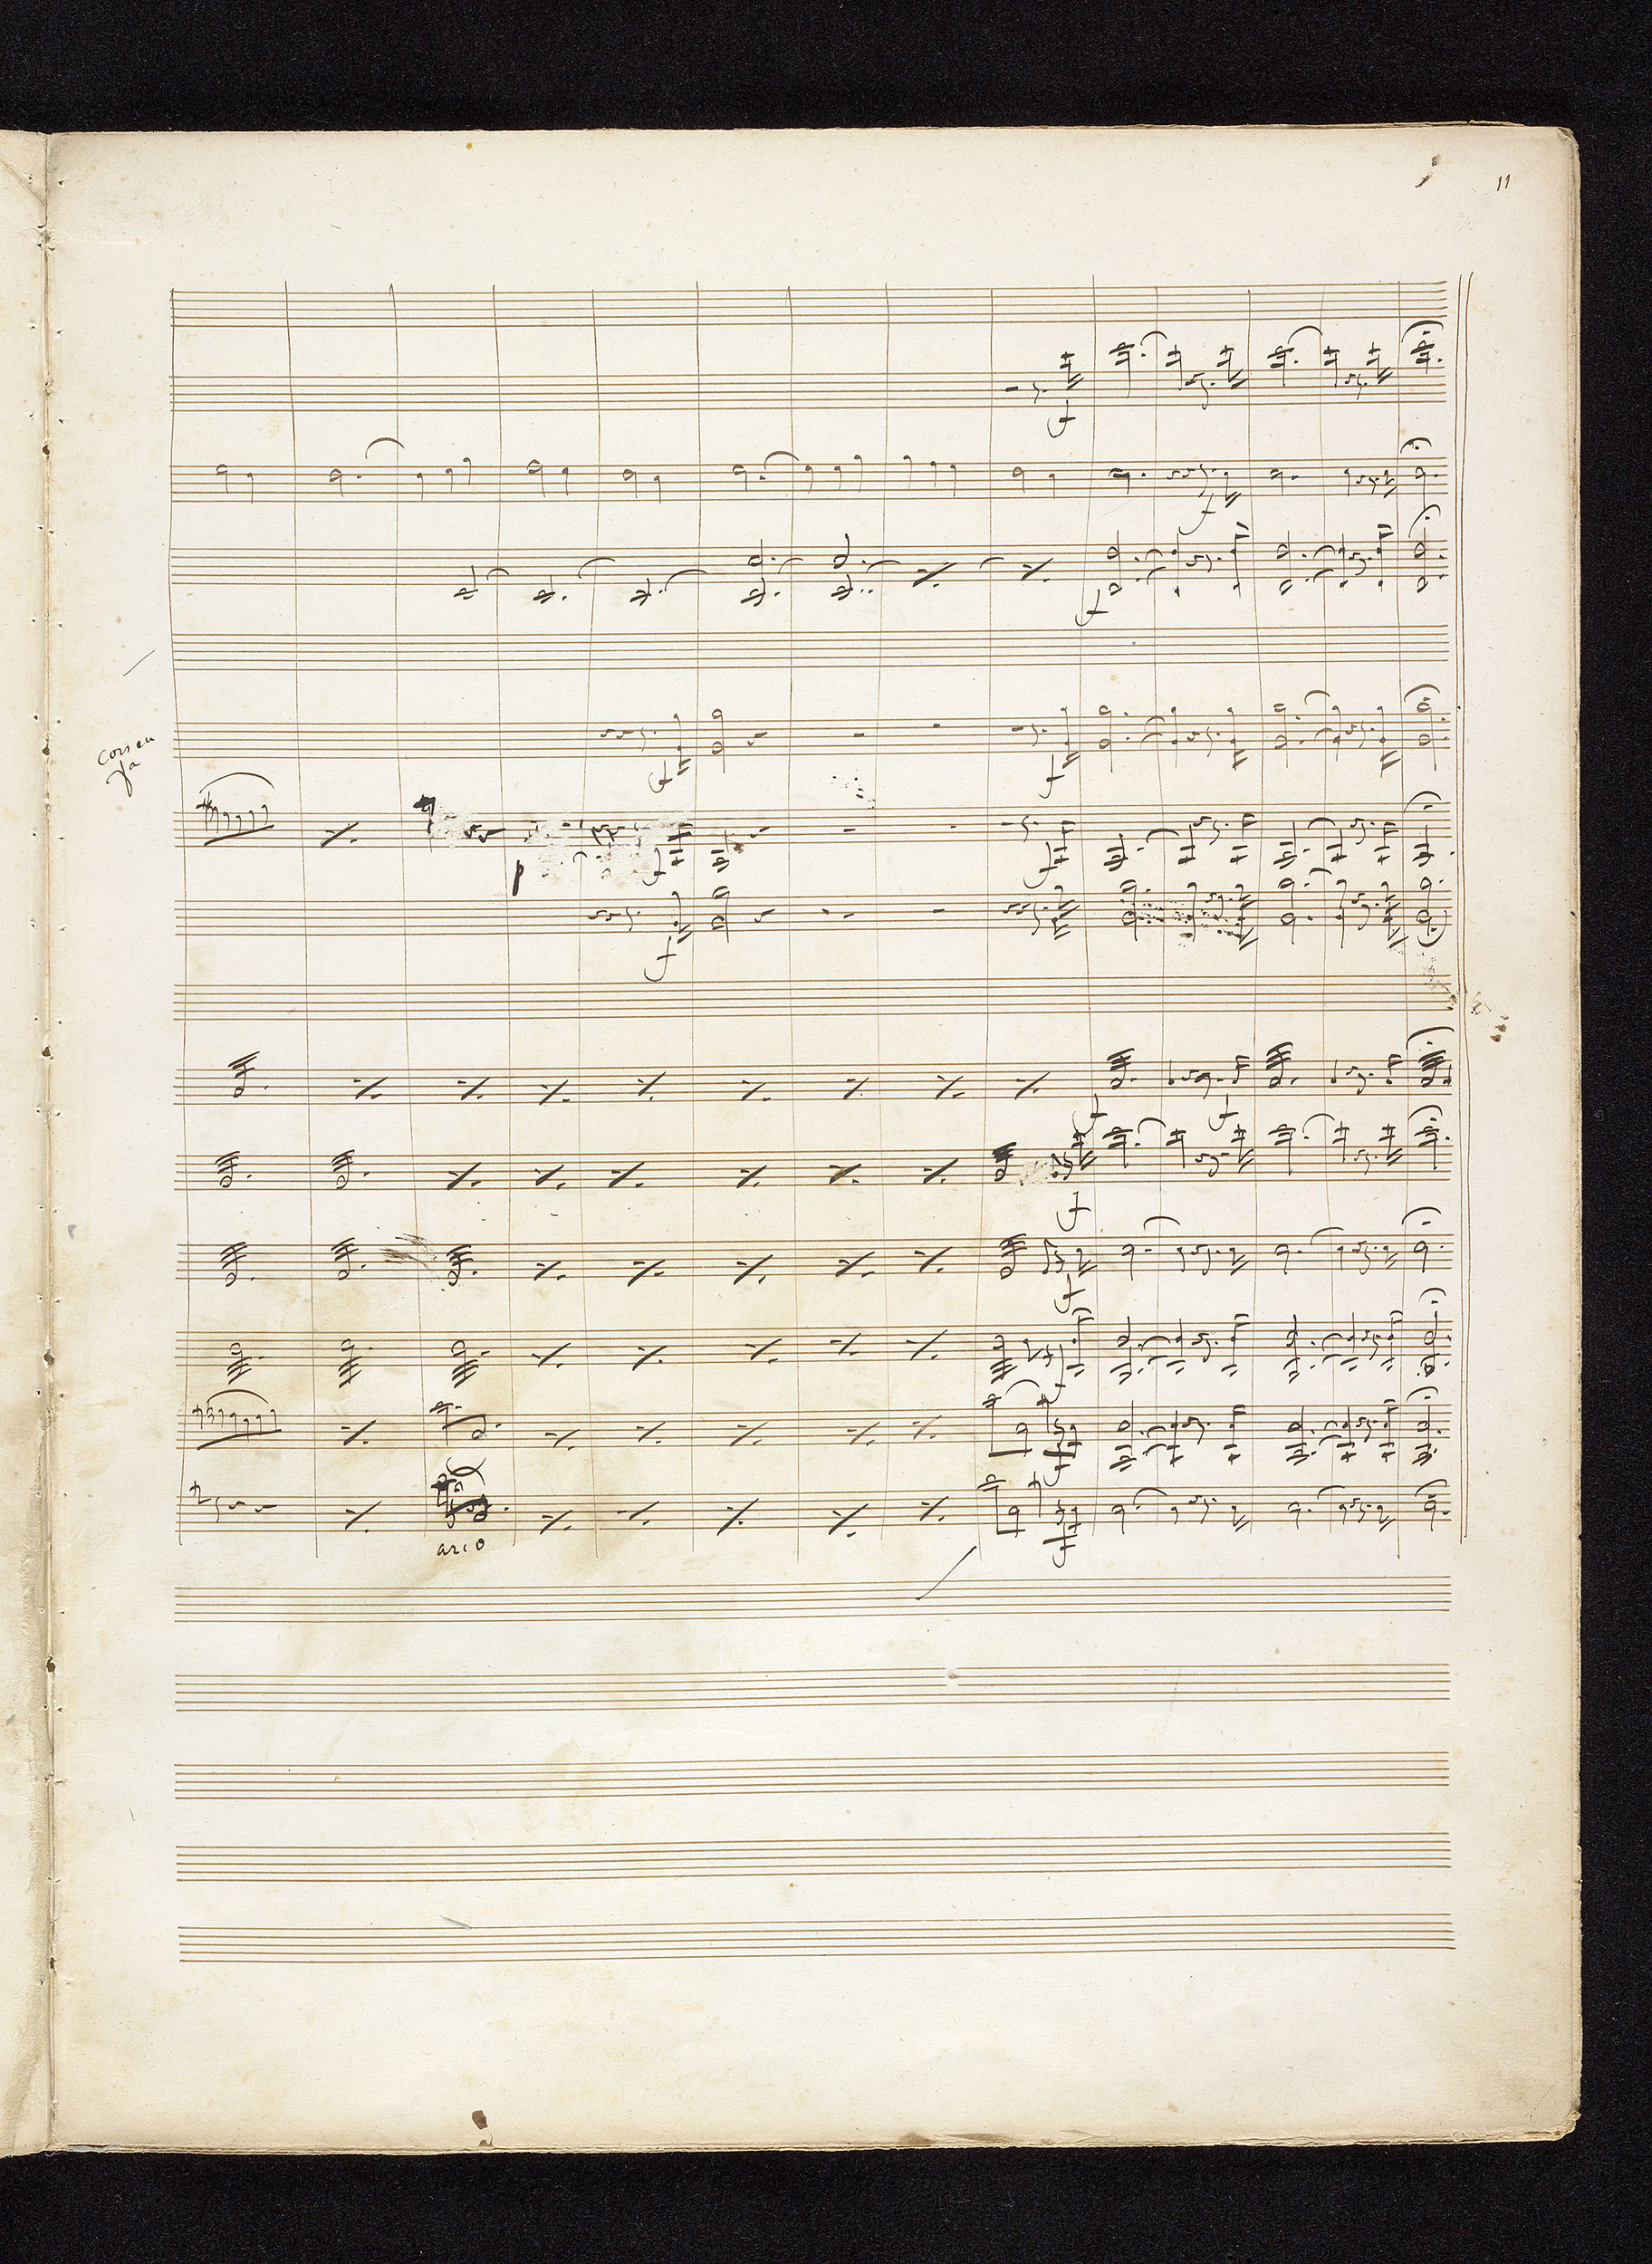 11
f
f
f
cors en
fa
f
f
p
f
f
f
f
f
f
f
f
f
arco
f